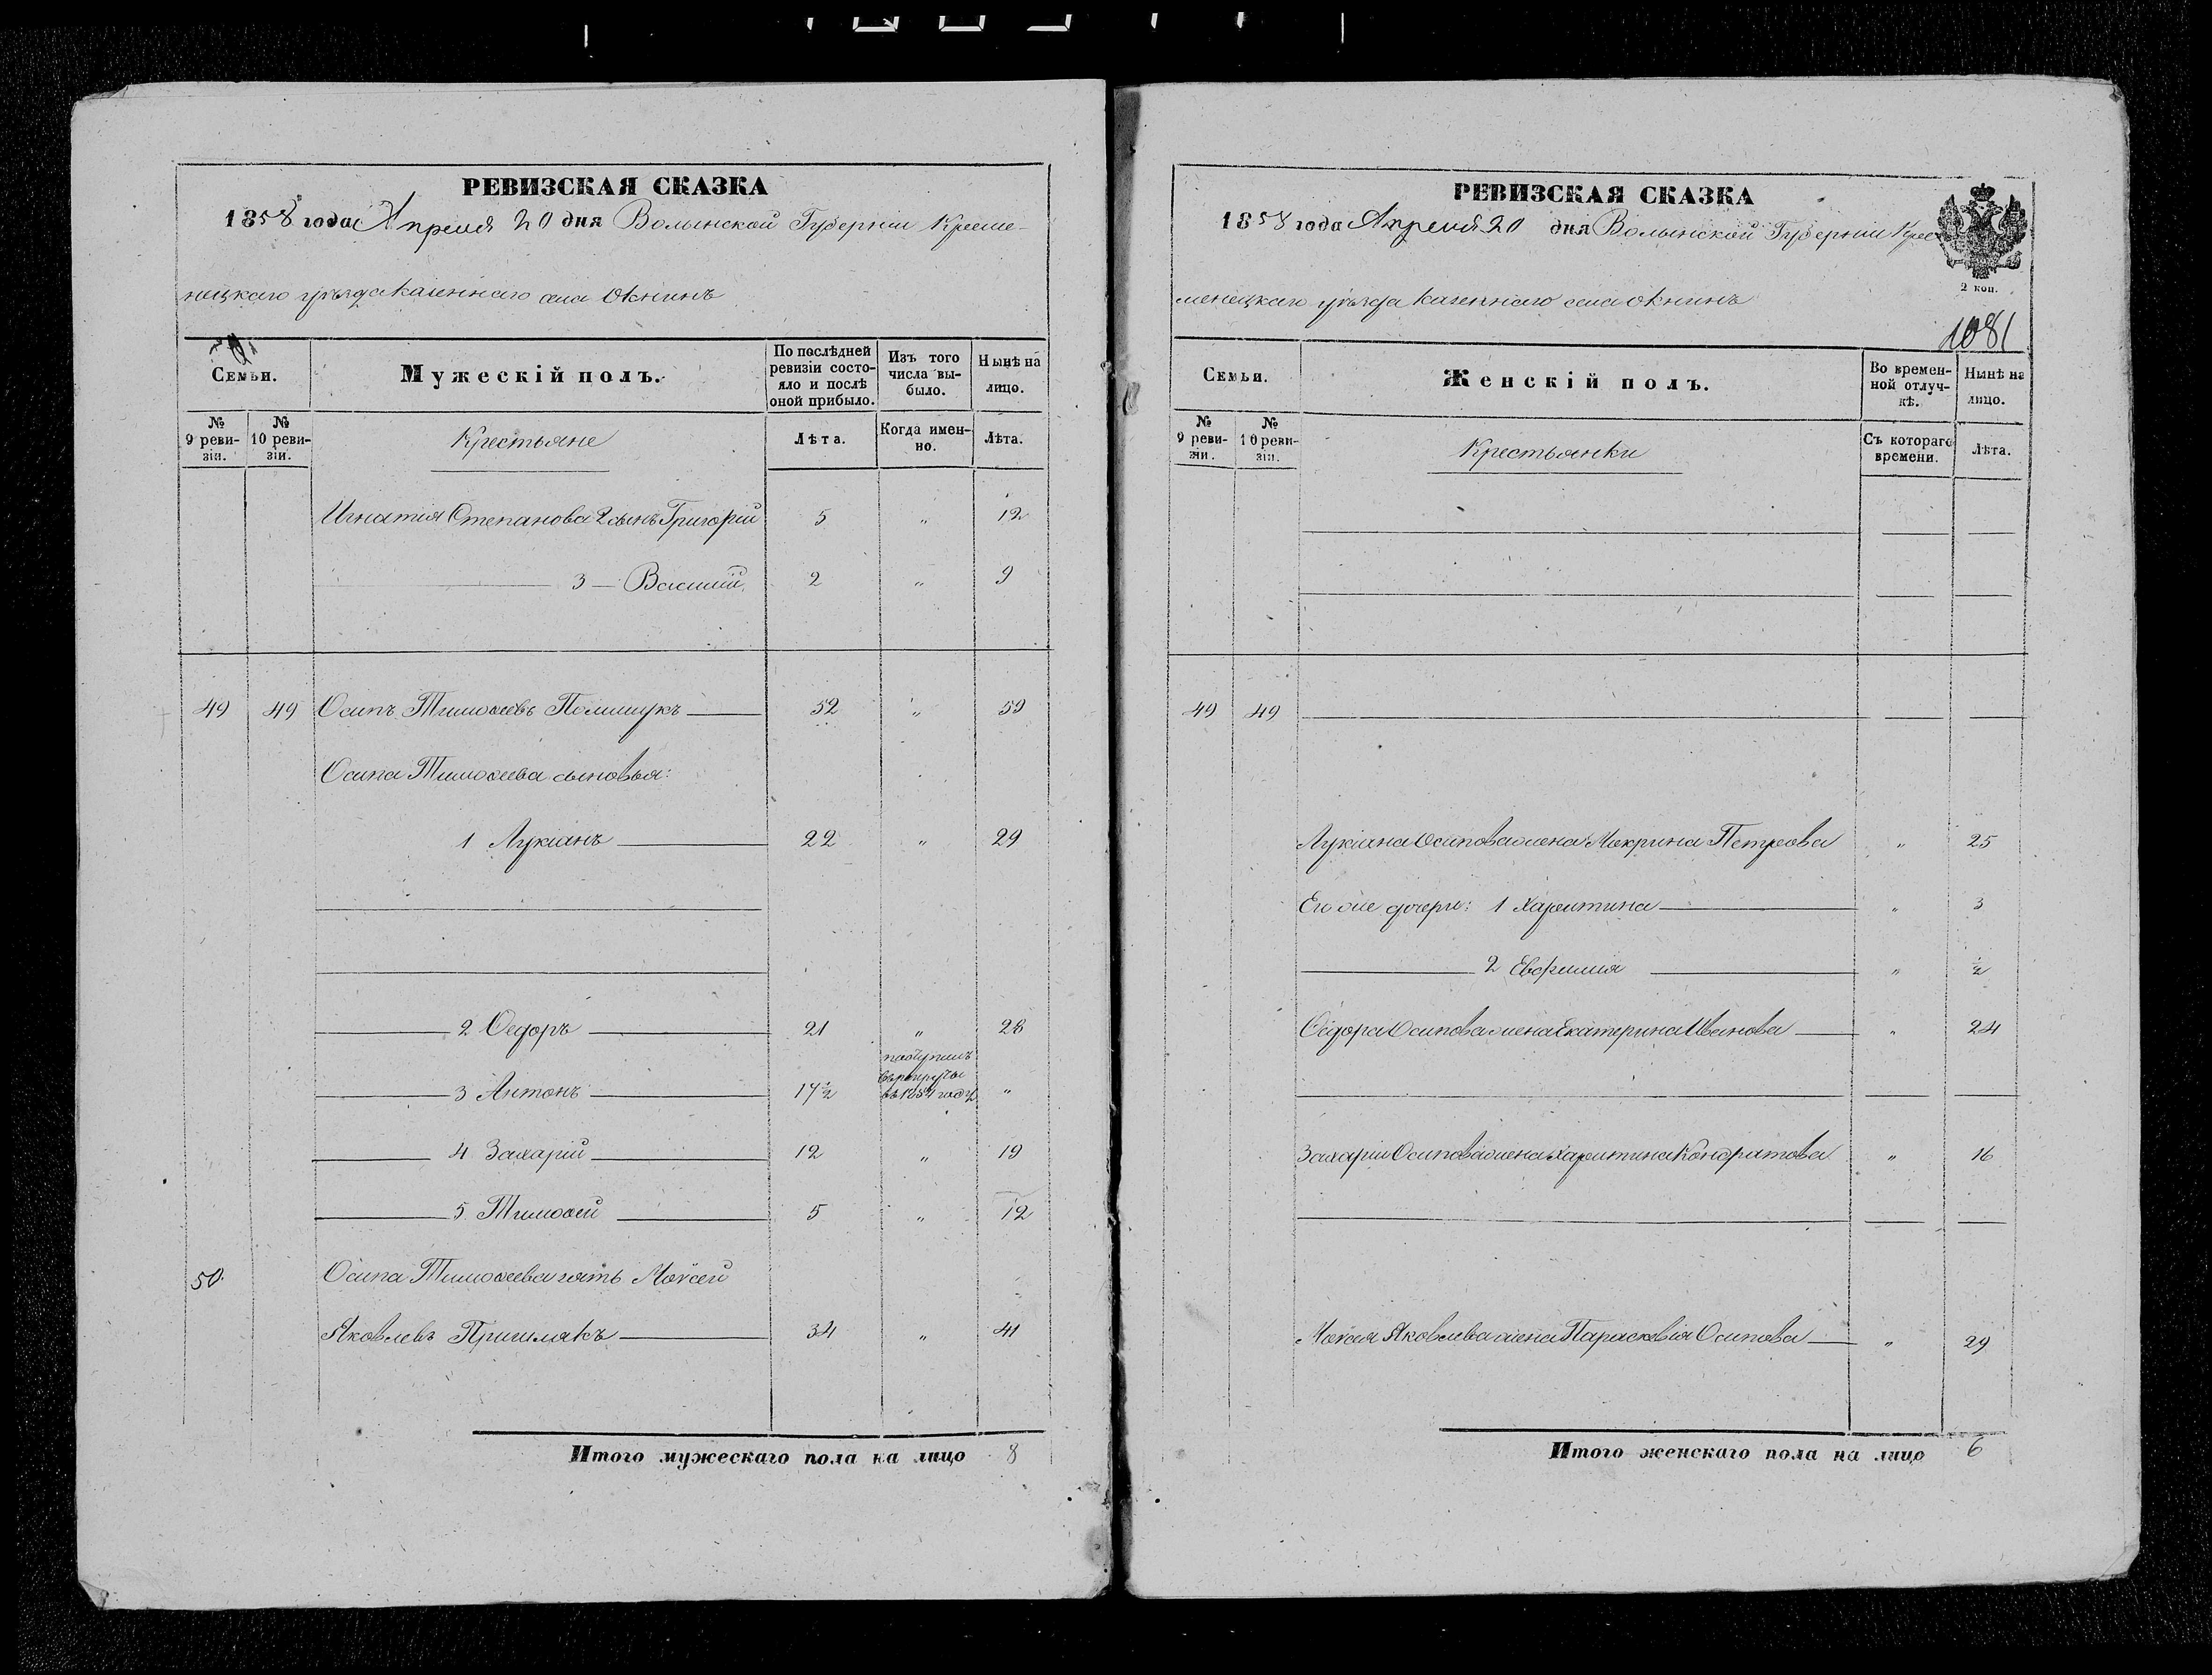 РЕВИЗСКАЯ СКАЗКА
1858 года Апреля 20 дня Волынской Губерніи Креме-
нецкаго уѣзда казеннаго села Окнинъ
Семьи.
Мужескій полъ.
По послѣдней ревизіи состо-яло и послѣ оной прибыло.
Изъ того числа вы-было.
Нынѣ на лицо.
№ 9 реви-зіи.
№ 10 реви-зіи.
Крестьяне
Лѣта.
Когда имен-но.
Лѣта.
Игнатія Степанова 2 сынъ Григорій 5 " 12
3 — Василій 2 " 9
49 49 Осипъ Тимоѳеевъ Полищукъ 52 " 59
Осипа Тимоѳеева сыновья:
1 Лукіанъ 22 " 29
2 Ѳедоръ 21 " 28
3 Антонъ 17½ поступилъ въ рекруты въ 1854 году "
4 Захарій 12 " 19
5 Тимоѳей 5 " 12
50. Осипа Тимоѳеева зять Моѵсей
Яковлевъ Пришлякъ 34 " 41
Итого мужескаго пола на лицо 8
РЕВИЗСКАЯ СКАЗКА
1858 года Апреля 20 дня Волынской Губерніи Кре
менецкаго уѣзда казеннаго села Окнинъ
2 коп.
1081
Семьи.
Женскій полъ.
Во времен-ной отлуч-кѣ.
Нынѣ на лицо.
№ 9 реви-зіи.
№ 10 реви-зіи.
Крестьянки
Съ котораго времени.
Лѣта.
49 49
Лукіана Осипова жена Макрина Петрова " 25
Его же дочери: 1 Харитина " 3
2 Евфимія " ½
Ѳедора Осипова жена Екатерина Иванова " 24
Захарія Осипова жена Харитина Кондратова " 16
Моѵсея Яковлева жена Параскевія Осипова " 29
Итого женскаго пола на лицо 6